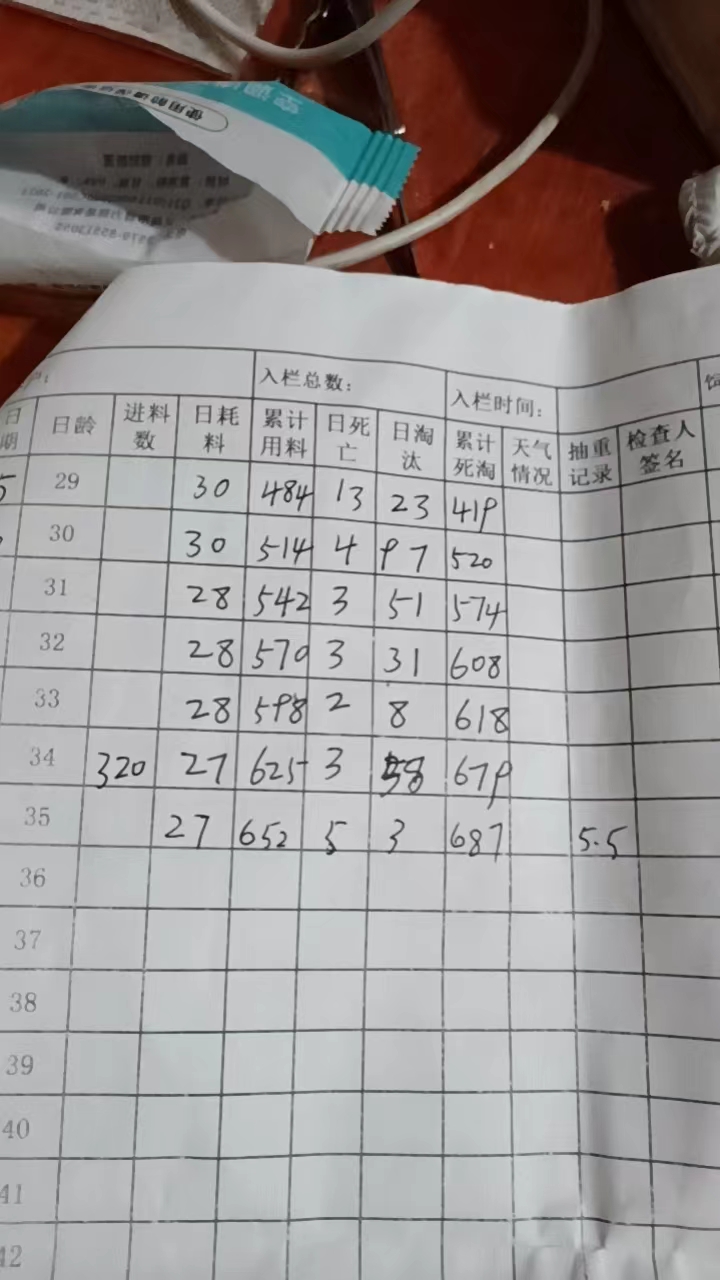 使用前请
入栏总数： 入栏时间：
日期 日龄 进料数 日耗料 累计用料 日死亡 日淘汰 累计死淘 天气情况 抽重记录 检查人签名
29 30 484 13 23 419
30 30 514 4 97 520
31 28 542 3 51 574
32 28 570 3 31 608
33 28 598 2 8 618
34 320 27 625 3 58 679
35 27 652 5 3 687 5.5
36
37
38
39
40
41
42